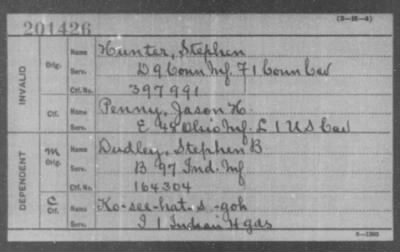 (3-35-a)
201426
INVALID
Orig. Name Hunter, Stephen
Serv. D 9 Conn Inf. F 1 Conn Cav
Ctf. No. 397991
Ctf. Name Penny, Jason H.
Serv. E 48 Ohio Inf. L 1 U S Cav
DEPENDENT
M Orig. Name Dudley, Stephen B
Serv. B 97 Ind. Inf
Ctf. No. 164304
C Ctf. Name Ko-see-hot-s-goh
Serv. I 1 Indian H gds